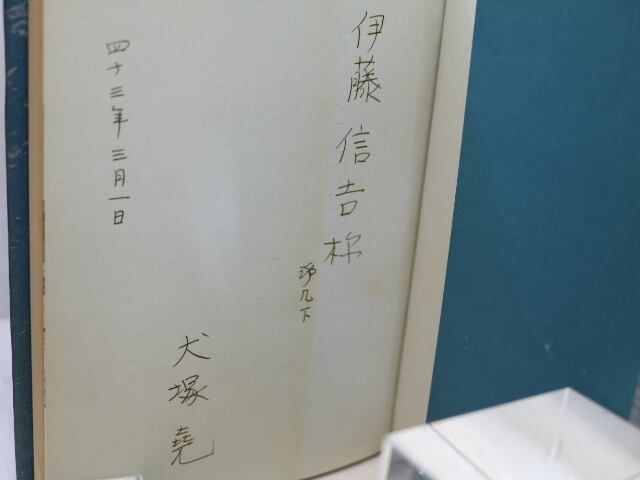 伊藤信吉様
浄几下
四十三年三月一日
犬塚堯